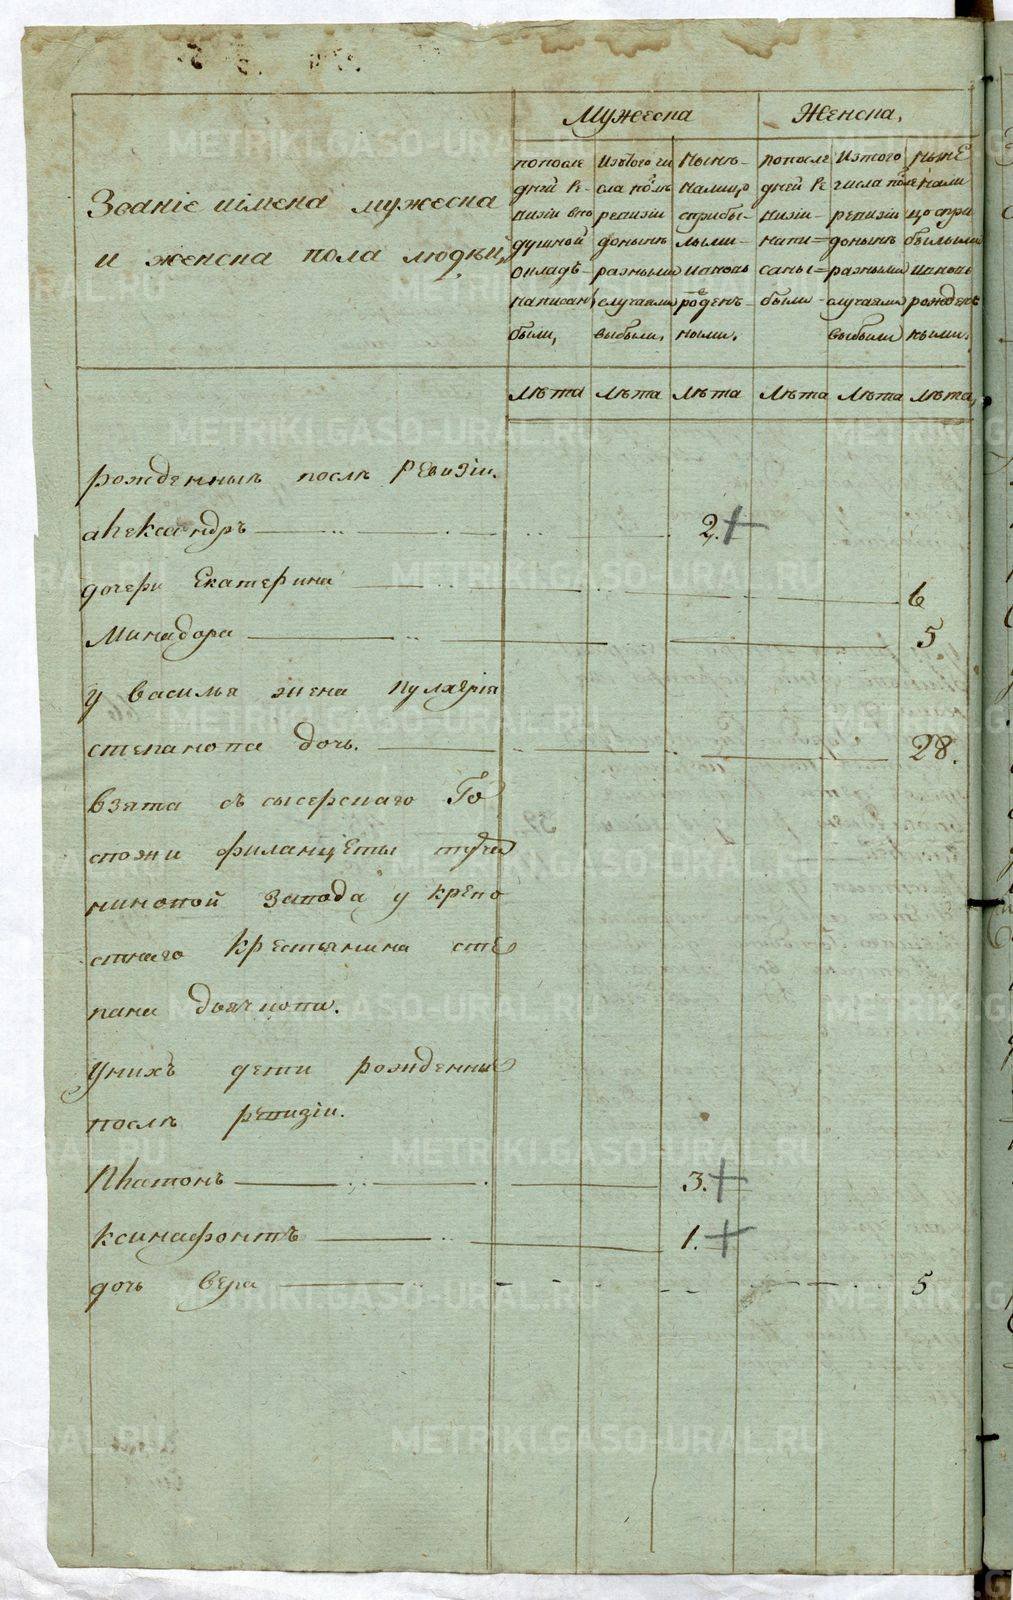 Мужеска
Женска,
Званіе иімена мужеска
и женска пола людѣй,
попосле
дней ре
визіи вно
душной
окладѣ
написаны
были,
Изътого чи
сла помѣ
ревизіи
донынѣ
разными
случаями
выбыли,
Нынѣ
налицо
сприбы-
лыми
иановь
рожден-
ными.
попосле
дней ре
визіи
напи=
саны=
были
Изтого
числа после
ревизіи
донынѣ
разными
случаями
выбыли
ныне
нали
цо спри
былыми
иановь
рожден
ными.
лѣта лѣта лѣта лѣта лѣта лѣта,
рожденныя послѣ Ревизіи.
александръ 2.
дочери Екатерина 6
Минадора 5
у василья жена пулхерія
степанова дочь. 28.
взята съ сысерскаго Го
спожи филанцеты турча
ниновой завода у крепо
стнаго крестьянина сте
пана дьячкова.
Унихъ дети рожденные
послѣ ревизіи.
Платонъ 3.
ксинафонтъ 1.
дочь вера 5
METRIKI.GASO-URAL.RU